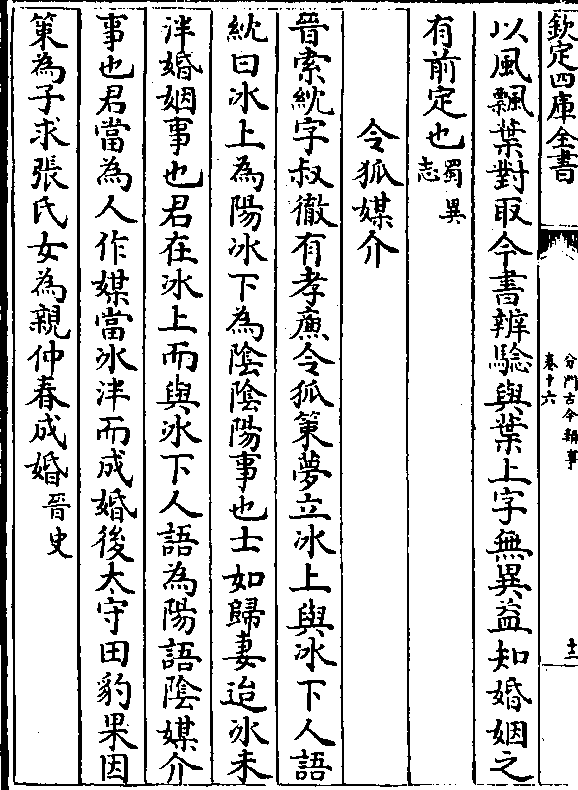 欽定四庫全書
分門古今類事
卷十六
十二
以風飄葉對取今書辨驗與葉上字無異益知婚姻之
有前定也蜀異志
令狐媒介
晉索紞字叔徹有孝廉令狐策夢立冰上與冰下人語
紞曰冰上為陽冰下為陰陰陽事也士如歸妻迨冰未
泮婚姻事也君在冰上而與冰下人語為陽語陰媒介
事也君當為人作媒當冰泮而成婚後太守田豹果因
策為子求張氏女為親仲春成婚晉史